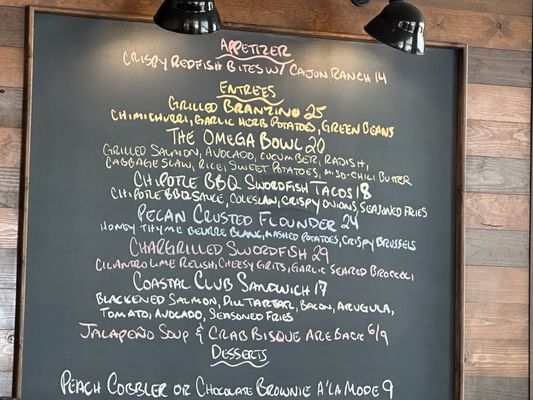 Appetizer
Crispy Redfish Bites w/ Cajun Ranch 14
Entrees
Grilled Branzino 25
Chimichurri, Garlic Herb Potatoes, Green Beans
The Omega Bowl 20
Grilled Salmon, Avocado, Cucumber, Radish,
Cabbage Slaw, Rice, Sweet Potatoes, Miso-Chili Butter
Chipotle BBQ Swordfish Tacos 18
Chipotle BBQ Sauce, Coleslaw, Crispy Onions, Seasoned Fries
Pecan Crusted Flounder 24
Honey Thyme Beurre Blanc, Mashed Potatoes, Crispy Brussels
Chargrilled Swordfish 29
Cilantro Lime Relish, Cheesy Grits, Garlic Seared Broccoli
Coastal Club Sandwich 17
Blackened Salmon, Dill Tartar, Bacon, Arugula,
Tomato, Avocado, Seasoned Fries
Jalapeño Soup & Crab Bisque Are Back 6/9
Desserts
Peach Cobbler or Chocolate Brownie A'la Mode 9